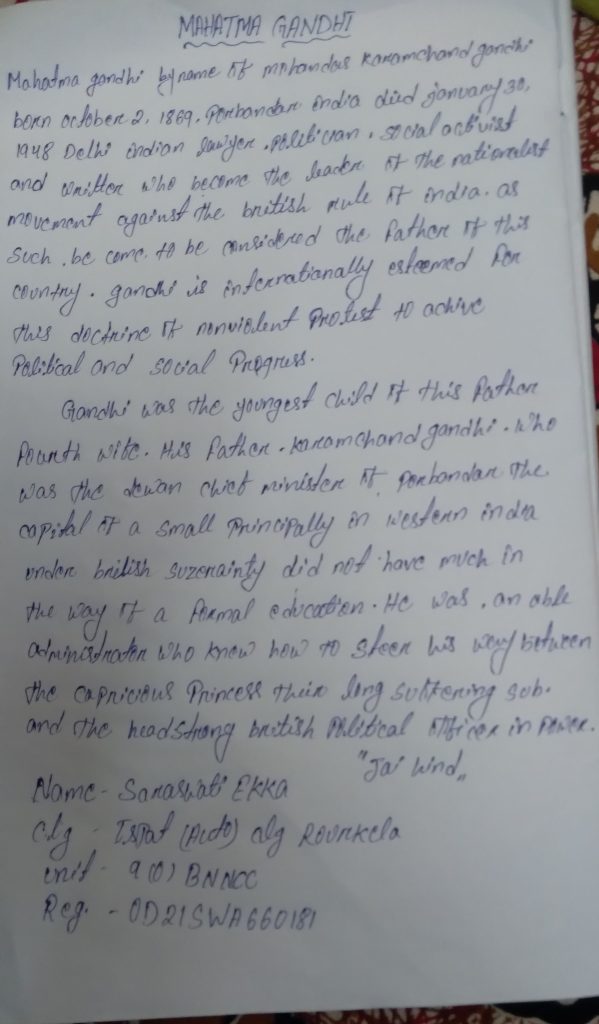 MAHATMA GANDHI
Mahatma gandhi byname of mohandas karamchand gandhi
born october 2, 1869. Porbandar india died january 30,
1948 Delhi indian lawyer .politician . social activist
and writter who become the leader of the nationalist
movement against the british rule of india. as
such . be come. to be considered the father of this
country. gandhi is internationally esteemed for
this doctrine of nonviolent Protest to achive
Political and social Progress.
Gandhi was the youngest child of this father
fourth wife. His father. karamchand gandhi. who
was the dewan chief minister of porbandar the
capital of a small Principally in western india
under british suzerainty did not have much in
the way of a formal education. He was . an able
administrator who knew how to steer his way between
the capricious Princess their long suffering sub.
and the headstrong british Political officer in Power.
"Jai hind„
Name - Saraswati EKKA
Clg - Ispat (Auto) clg Rourkela
unit - 9 (O) BN NCC
Reg. - OD21SWA660181